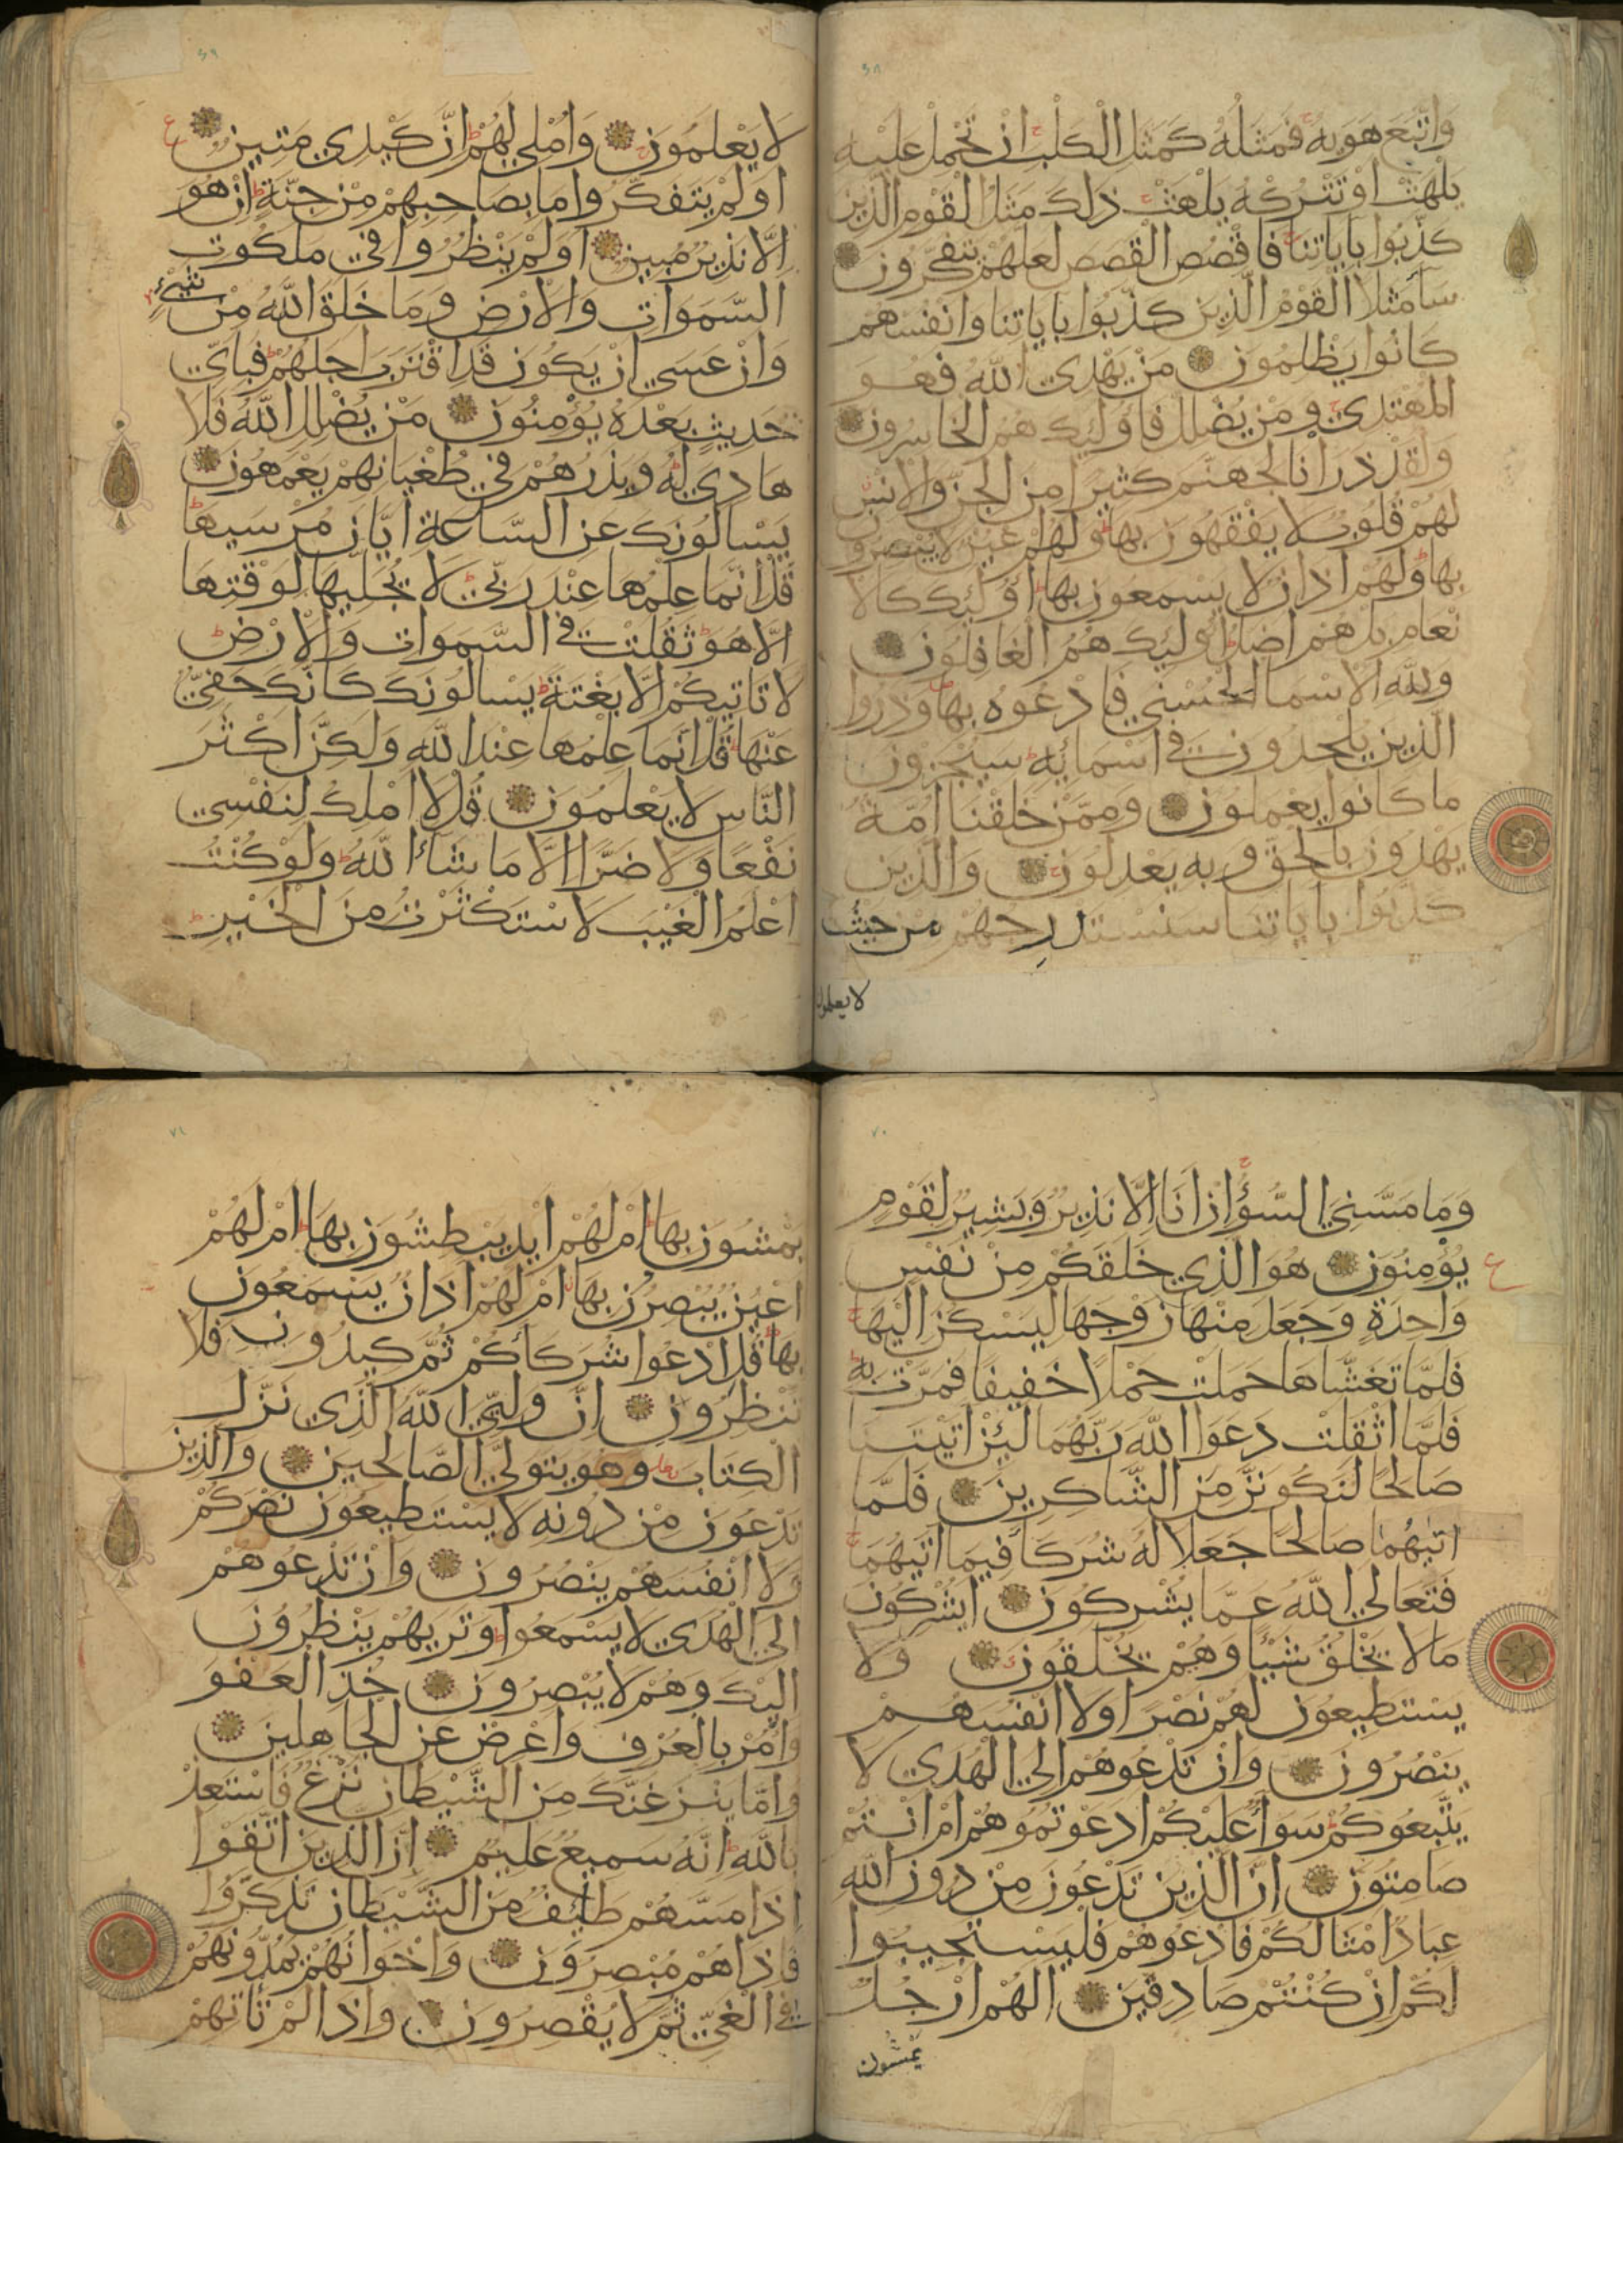 ٦٨
وَاتَّبَعَ هَوٰيهُ فَمَثَلُهُ كَمَثَلِ الْكَلْبِ اِنْ تَحْمِلْ عَلَيْهِ
يَلْهَثْ اَوْ تَتْرُكْهُ يَلْهَثْ ذٰلِكَ مَثَلُ الْقَوْمِ الَّذِينَ
كَذَّبُوا بِاٰيَاتِنَا فَاقْصُصِ الْقَصَصَ لَعَلَّهُمْ يَتَفَكَّرُونَ
سَآءَ مَثَلًا الْقَوْمُ الَّذِينَ كَذَّبُوا بِاٰيَاتِنَا وَاَنْفُسَهُمْ
كَانُوا يَظْلِمُونَ مَنْ يَهْدِي اللّٰهُ فَهُوَ
الْمُهْتَدِي وَمَنْ يُضْلِلْ فَاُولٰئِكَ هُمُ الْخَاسِرُونَ
وَلَقَدْ ذَرَأْنَا لِجَهَنَّمَ كَثِيرًا مِنَ الْجِنِّ وَالْاِنْسِ
لَهُمْ قُلُوبٌ لَا يَفْقَهُونَ بِهَا وَلَهُمْ اَعْيُنٌ لَا يُبْصِرُونَ
بِهَا وَلَهُمْ اٰذَانٌ لَا يَسْمَعُونَ بِهَا اُولٰئِكَ كَالْا
نْعَامِ بَلْ هُمْ اَضَلُّ اُولٰئِكَ هُمُ الْغَافِلُونَ
وَلِلّٰهِ الْاَسْمَا الْحُسْنٰي فَادْعُوهُ بِهَا وَذَرُوا
الَّذِينَ يُلْحِدُونَ فِي اَسْمَائِهِ سَيُجْزَوْنَ
مَا كَانُوا يَعْمَلُونَ وَمِمَّنْ خَلَقْنَا اُمَّةٌ
يَهْدُونَ بِالْحَقِّ وَبِهِ يَعْدِلُونَ وَالَّذِينَ
كَذَّبُوا بِاٰيَاتِنَا سَنَسْتَدْرِجُهُمْ مِنْ حَيْثُ
لا يعلمون
٦٩
لَا يَعْلَمُونَ وَاُمْلِي لَهُمْ اِنَّ كَيْدِي مَتِينٌ
اَوَلَمْ يَتَفَكَّرُوا مَا بِصَاحِبِهِمْ مِنْ جِنَّةٍ اِنْ هُوَ
اِلَّا نَذِيرٌ مُبِينٌ اَوَلَمْ يَنْظُرُوا فِي مَلَكُوتِ
السَّمَوَاتِ وَالْاَرْضِ وَمَا خَلَقَ اللّٰهُ مِنْ شَيْءٍ
وَاَنْ عَسٰي اَنْ يَكُونَ قَدِ اقْتَرَبَ اَجَلُهُمْ فَبِاَيِّ
حَدِيثٍ بَعْدَهُ يُؤْمِنُونَ مَنْ يُضْلِلِ اللّٰهُ فَلَا
هَادِيَ لَهُ وَيَذَرُهُمْ فِي طُغْيَانِهِمْ يَعْمَهُونَ
يَسْالُونَكَ عَنِ السَّاعَةِ اَيَّانَ مُرْسٰيهَا
قُلْ اِنَّمَا عِلْمُهَا عِنْدَ رَبِّي لَا يُجَلِّيهَا لِوَقْتِهَا
اِلَّا هُوَ ثَقُلَتْ فِي السَّمَوَاتِ وَالْاَرْضِ
لَا تَاتِيكُمْ اِلَّا بَغْتَةً يَسْالُونَكَ كَاَنَّكَ حَفِيٌّ
عَنْهَا قُلْ اِنَّمَا عِلْمُهَا عِنْدَ اللّٰهِ وَلٰكِنَّ اَكْثَرَ
النَّاسِ لَا يَعْلَمُونَ قُلْ لَا اَمْلِكُ لِنَفْسِي
نَفْعًا وَلَا ضَرًّا اِلَّا مَا شَآءَ اللّٰهُ وَلَوْ كُنْتُ
اَعْلَمُ الْغَيْبَ لَاسْتَكْثَرْتُ مِنَ الْخَيْرِ
٧٠
وَمَا مَسَّنِيَ السُّوءُ اِنْ اَنَا اِلَّا نَذِيرٌ وَبَشِيرٌ لِقَوْمٍ
يُؤْمِنُونَ هُوَ الَّذِي خَلَقَكُمْ مِنْ نَفْسٍ
وَاحِدَةٍ وَجَعَلَ مِنْهَا زَوْجَهَا لِيَسْكُنَ اِلَيْهَا
فَلَمَّا تَغَشَّاهَا حَمَلَتْ حَمْلًا خَفِيفًا فَمَرَّتْ بِهِ
فَلَمَّا اَثْقَلَتْ دَعَوَا اللّٰهَ رَبَّهُمَا لَئِنْ اٰتَيْتَنَا
صَالِحًا لَنَكُونَنَّ مِنَ الشَّاكِرِينَ فَلَمَّا
اٰتٰيهُمَا صَالِحًا جَعَلَا لَهُ شُرَكَآءَ فِيمَا اٰتٰيهُمَا
فَتَعَالَي اللّٰهُ عَمَّا يُشْرِكُونَ اَيُشْرِكُونَ
مَا لَا يَخْلُقُ شَيْئًا وَهُمْ يُخْلَقُونَ وَلَا
يَسْتَطِيعُونَ لَهُمْ نَصْرًا وَلَا اَنْفُسَهُمْ
يَنْصُرُونَ وَاِنْ تَدْعُوهُمْ اِلَي الْهُدٰي لَا
يَتَّبِعُوكُمْ سَوَآءٌ عَلَيْكُمْ اَدَعَوْتُمُوهُمْ اَمْ اَنْتُمْ
صَامِتُونَ اِنَّ الَّذِينَ تَدْعُونَ مِنْ دُونِ اللّٰهِ
عِبَادٌ اَمْثَالُكُمْ فَادْعُوهُمْ فَلْيَسْتَجِيبُوا
لَكُمْ اِنْ كُنْتُمْ صَادِقِينَ اَلَهُمْ اَرْجُلٌ
يمشون
٧١
يَمْشُونَ بِهَا اَمْ لَهُمْ اَيْدٍ يَبْطِشُونَ بِهَا اَمْ لَهُمْ
اَعْيُنٌ يُبْصِرُونَ بِهَا اَمْ لَهُمْ اٰذَانٌ يَسْمَعُونَ
بِهَا قُلِ ادْعُوا شُرَكَآءَكُمْ ثُمَّ كِيدُونِ فَلَا
تُنْظِرُونِ اِنَّ وَلِيِّيَ اللّٰهُ الَّذِي نَزَّلَ
الْكِتَابَ وَهُوَ يَتَوَلَّي الصَّالِحِينَ وَالَّذِينَ
تَدْعُونَ مِنْ دُونِهِ لَا يَسْتَطِيعُونَ نَصْرَكُمْ
وَلَا اَنْفُسَهُمْ يَنْصُرُونَ وَاِنْ تَدْعُوهُمْ
اِلَي الْهُدٰي لَا يَسْمَعُوا وَتَرٰيهُمْ يَنْظُرُونَ
اِلَيْكَ وَهُمْ لَا يُبْصِرُونَ خُذِ الْعَفْوَ
وَاْمُرْ بِالْعُرْفِ وَاَعْرِضْ عَنِ الْجَاهِلِينَ
وَاِمَّا يَنْزَغَنَّكَ مِنَ الشَّيْطَانِ نَزْغٌ فَاسْتَعِذْ
بِاللّٰهِ اِنَّهُ سَمِيعٌ عَلِيمٌ اِنَّ الَّذِينَ اتَّقَوْا
اِذَا مَسَّهُمْ طَائِفٌ مِنَ الشَّيْطَانِ تَذَكَّرُوا
فَاِذَا هُمْ مُبْصِرُونَ وَاِخْوَانُهُمْ يَمُدُّونَهُمْ
فِي الْغَيِّ ثُمَّ لَا يُقْصِرُونَ وَاِذَا لَمْ تَأْتِهِمْ